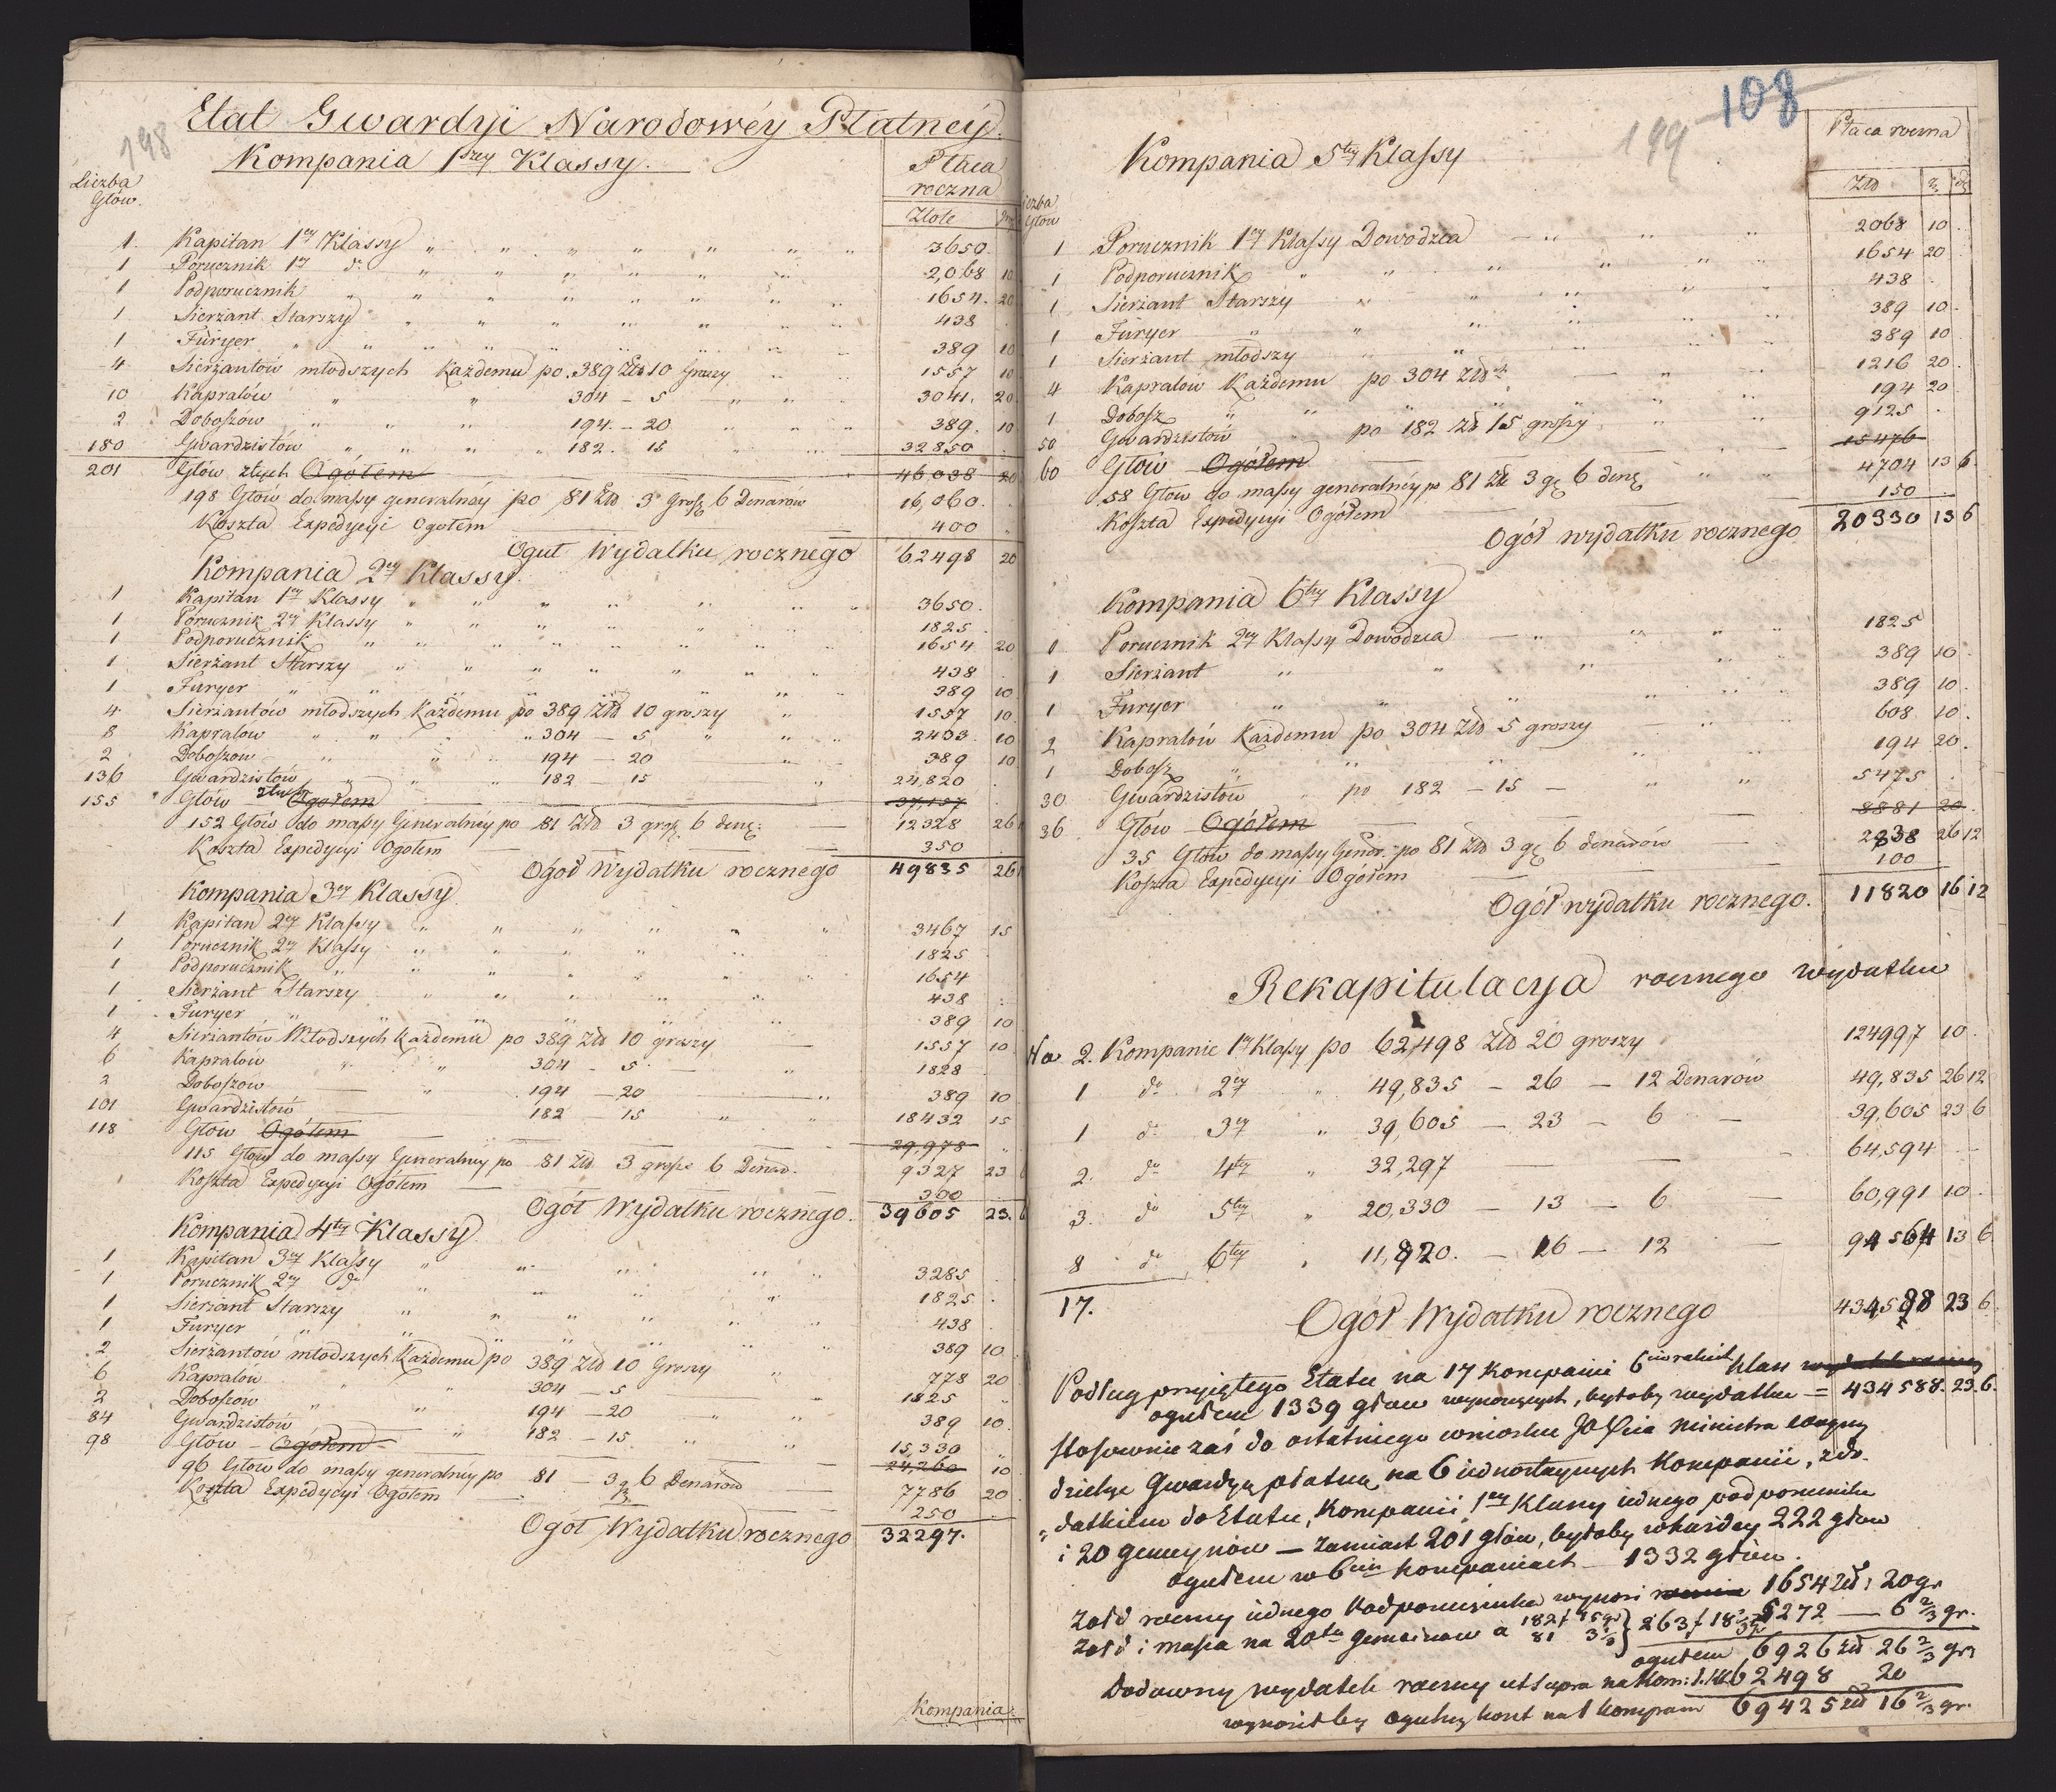 198
Etat Gwardyi Narodowéy Płatnéy.
Kompania 1szey Klassy.
Liczba Głów.
Płaca roczna
Złote gr.
1. Kapitan 1ey Klassy 3650.
1 Porucznik 1ey do 2,068 10
1 Podporucznik 1654. 20
1. Sierżant Starszy 438
1 Furyer 389 10
4 Sierżantów młodszych każdemu po 389 Złp 10 Groszy 1557 10
10 Kapralów 304 – 5 3041. 20
2 Doboszów 194. – 20 389. 10
180 Gwardzistów 182. 15 32850
201 Głów złych Ogółem 46038 20
198 Głów do massy generalnéy po 81 Złp 3 Grosz 6 Denarów 16,060.
Koszta Expedycyi Ogołem 400
Oguł Wydatku rocznego 62498 20
Kompania 2ey Klassy.
1 Kapitan 1ey Klassy 3650.
1 Porucznik 2ey Klassy 1825
1 Podporucznik 1654 20
1 Sierżant Starszy 438
1 Furyer 389 10
4 Sierżantów młodszych każdemu po 389 Złp 10 groszy 1557 10
8 Kapralow 304 – 5 2433. 10
2 Doboszow 194 – 20 389 10
136 Gwardzistów 182 – 15 24,820
155 Głów Ogołem 37,157
152 Głów do massy Generalney po 81 Złp 3 grosz. 6 denę: 12328 26
Koszta Expedycyi Ogołem 350
Ogoł Wydatku rocznego 49835 26
Kompania 3ey Klassy
1 Kapitan 2ey Klassy 3467 15
1 Porucznik 2ey Klassy 1825
1 Podporucznik 1654
1 Sierżant Starszy 438
1 Furyer 389 10
4 Sierżantów Młodszych każdemu po 389 Złp 10 groszy 1557 10
6 Kapralów 304 – 5. 1828
2 Doboszow 194 – 20 389 10
101 Gwardzistów 182 – 15 18432 15
118 Głow Ogółem 29,978
115 Głów do massy Generalnéy po 81 Złp 3 grosze 6 Denar. 9327 23
Koszta Expedycyi Ogółem 300
Ogół Wydatku rocznego. 39605 23. 6
Kompania 4tey Klassy
1 Kapitan 3ey Klassy 3285
1 Porucznik 2ey do 1825
1 Sierżant Starszy 438
1 Furyer 389 10
2 Sierżantów młodszych każdemu po 389 Złp 10 Groszy 778 20
6 Kapralów 304 – 5 1825
2 Doboszów 194 – 20 389 10
84 Gwardzistów 182 – 15 15,330
98 Głów – Ogołem 24,260 10
96 Głow do massy generalnéy po 81 – 3 g 6 Denarów 7786 20
Koszta Expedycyi Ogołem 250
Ogoł Wydatku rocznego 32297.
Kompania
108
199
Kompania 5tey Klassy
Płaca roczna
Liczba Głow
Złp g d
1 Porucznik 1ey Klassy Dowódzca 2068 10
1 Podporucznik 1654 20
1 Sierżant Starszy 438
1 Furyer 389 10
1 Sierżant młodszy 389 10
4 Kapralów Każdemu po 304 Złp 5 1216 20
1 Dobosz 194 20
50 Gwardzistów po 182 Zł 15 groszy 9125
60 Głów – Ogółem 15476
58 Głow do massy generalnéy po 81 Zł 3 g 6 denę 4704 13 6
Koszta Expedycyi Ogółem 150
Ogół wydatku rocznego 20330 13 6
Kompania 6tey Klassy
1 Porucznik 2ey Klassy Dowódzca 1825
1 Sierżant 389 10
1 Furyer 389 10
2 Kapralów Każdemu po 304 Złp 5 groszy 608 10
1 Dobosz 194 20
30 Gwardzistów po 182 – 15 – 5475
36 Głów – Ogółem 8881 20
35 Głów do massy Gener. po 81 Złp 3 g 6 denarów 2838 26 12
Koszta Expedycyi Ogółem 100
Ogół wydatku rocznego. 11820 16 12
Rekapitulacya rocznego wydatku
Na 2. Kompanie 1ey Klassy po 62,498 Złp 20 groszy 124997 10
1 do 2ey 49,835 – 26 – 12 Denarów 49,835 26 12
1 do 3ey 39,605 – 23 – 6 39,605 23 6
2. do 4tey 32,297 64,594
3. do 5tey 20,330 – 13 – 6 60,991 10
8 do 6tey 11,820. – 16 – 12 94564 13 6
17. Ogół Wydatku rocznego 434588 23 6
Podług przyiętego Etatu na 17 Kompanii 6ciorakich klass
ogułem 1339 głow wynoszących, byłoby wydatku = 434588. 23. 6.
stosownie zaś do ostatniego wniosku JO Xcia Ministra Woyny
dzieląc Gwardyą płatną na 6 iednostaynych Kompanii, z do-
datkiem do Etatu, Kompanii 1ey Klassy iednego podporucznika
i 20 gemeynów – zamiast 201 głów, byłoby w każdey 222 głow
ogułem w 6ciu kompaniach – 1332 głów.
Żołd roczny iednego Podporucznika wynosi 1654 zł: 20 gr
Żołd i massa na 20tu Gemeinow a 182 f 15 gr 81 3 1/3 } 263 f 18 1/3 gr 5272 — 6 2/3 gr.
ogułem 6926 zł 26 2/3 gr
Dodawny wydatek roczny ut supra na Kom: 1. kl. 62498 20
wynosiłby ogulny koszt na 1 kompani 69425 zł 16 2/3 gr.